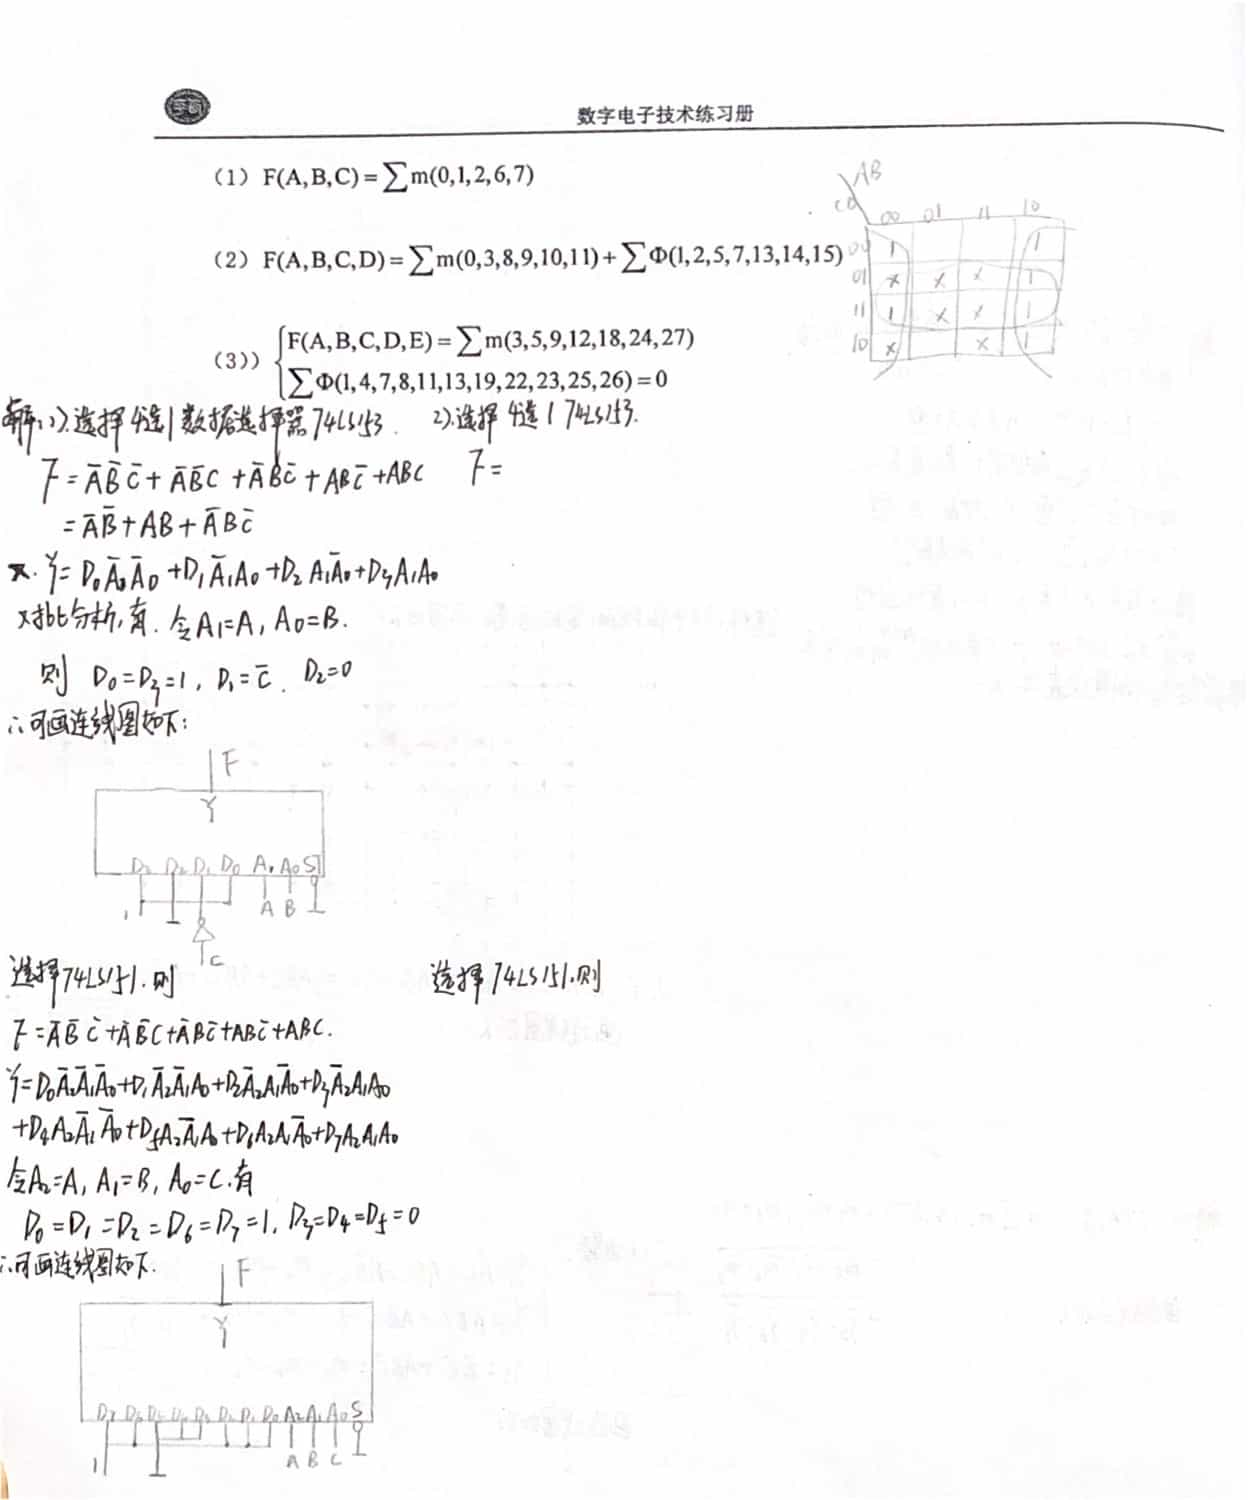 数字电子技术练习册
(1) F(A,B,C)=∑m(0,1,2,6,7)
(2) F(A,B,C,D)=∑m(0,3,8,9,10,11)+∑Φ(1,2,5,7,13,14,15)
(3)) { F(A,B,C,D,E)=∑m(3,5,9,12,18,24,27)
∑Φ(1,4,7,8,11,13,19,22,23,25,26)=0
AB
CD 00 01 11 10
00 1 1
01 x x x 1
11 1 x x 1
10 x x 1
解: 1).选择4选1数据选择器74LS153. 2).选择4选1 74LS153.
F=A̅B̅C̅+A̅B̅C+A̅BC̅+ABC̅+ABC F=
=A̅B̅+AB+A̅BC̅
又. Y=D₀A̅₀A̅₀+D₁A̅₁A₀+D₂A₁A̅₀+D₃A₁A₀
对比分析,有. 令A₁=A, A₀=B.
则 D₀=D₃=1, D₁=C̅. D₂=0
∴可画连线图如下:
F
Y
D₃ D₂ D₁ D₀ A₁ A₀ S̅T̅
1 A B
C
选择74LS151.则 选择74LS151.则
F=A̅B̅C̅+A̅B̅C+A̅BC̅+ABC̅+ABC.
Y=D₀A̅₂A̅₁A̅₀+D₁A̅₂A̅₁A₀+D₂A̅₂A₁A̅₀+D₃A̅₂A₁A₀
+D₄A₂A̅₁A̅₀+D₅A₂A̅₁A₀+D₆A₂A₁A̅₀+D₇A₂A₁A₀
令A₂=A, A₁=B, A₀=C.有
D₀=D₁=D₂=D₆=D₇=1, D₃=D₄=D₅=0
∴可画连线图如下.
F
Y
D₇ D₆ D₅ D₄ D₃ D₂ D₁ D₀ A₂ A₁ A₀ S
1 A B C